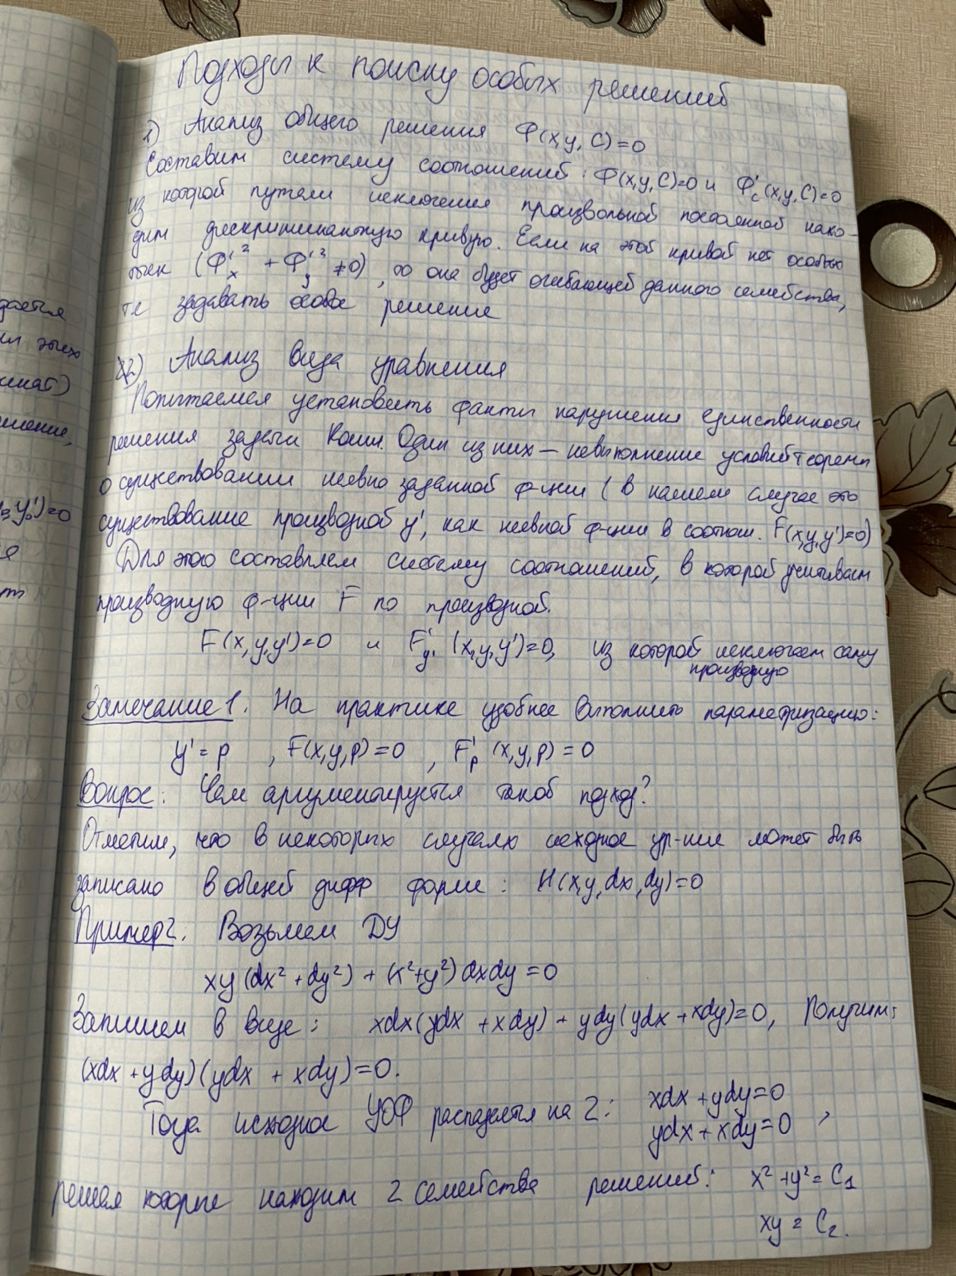 Подходы к поиску особых решений
1) Анализ общего решения Φ(x,y,C)=0
Составим систему соотношений: Φ(x,y,C)=0 и Φ'c(x,y,C)=0
из которой путём исключения произвольной постоянной нахо-
дим дискриминантную кривую. Если на этой кривой нет особых
точек (Φ'x² + Φ'y² ≠0), то она будет огибающей данного семейства,
те задавать особое решение
2) Анализ вида уравнения
Попытаемся установить факты нарушения единственности
решения задачи Коши. Один из них – невыполнение условий теоремы
о существовании неявно заданной ф-ции (в нашем случае это
существование производной y', как неявной ф-ции в соотнош. F(x,y,y'=0)
Для этого составляем систему соотношений, в которой учитываем
производную ф-ции F по производной.
F(x,y,y')=0 и F'y' (x,y,y')=0, из которой исключаем саму
производную
Замечание 1. На практике удобнее выполнить параметризацию:
y' = p , F(x,y,p)=0 , F'p (x,y,p)=0
Вопрос: Чем аргументируется такой подход?
Отметим, что в некоторых случаях исходное ур-ние может быть
записано в общей дифф форме: H(x,y,dx,dy)=0
Пример2. Возьмём ДУ
xy(dx² + dy²) + (x²+y²)dxdy=0
Запишем в виде: xdx(ydx + xdy) + ydy(ydx + xdy)=0, Получим:
(xdx + ydy)(ydx + xdy)=0.
Тогда исходное УОФ распадается на 2: xdx + ydy=0
ydx + xdy=0 ,
решая которые находим 2 семейства решений: x² + y² = C1
xy = C2.
дается
0,y'0)=0